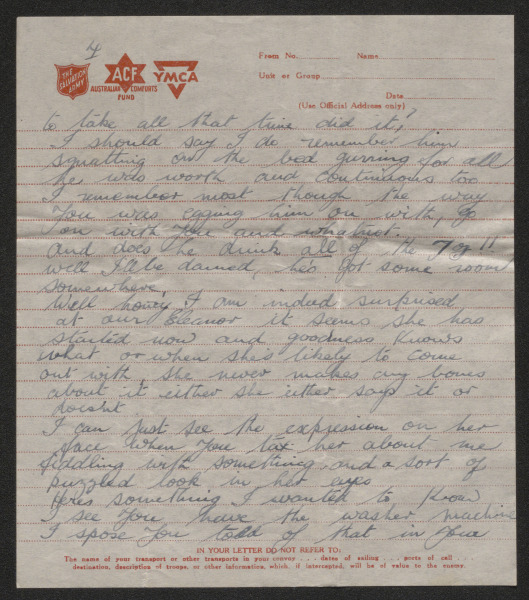 4
THE SALVATION ARMY
ACF
AUSTRALIAN COMFORTS FUND
YMCA
From No. Name
Unit or Group
Date
(Use Official Address only)
to take all that time did it?
I should say I do remember him
squatting on the bed gurning for all
he was worth and continuous too
I remember most though the way
You was egging him on with, go
on with You and whatnot.
And does he drink all of the 7 oz!!
well I'll be darned, he's got some room
somewhere,
Well honey I am indeed surprised
at our Eleanor it seems she has
started now and goodness knows
what or when she's likely to come
out with she never makes any bones
about it either she either says it or
doesn't
I can just see the expression on her
face when You tax her about me
fiddling with something and a sort of
puzzled look in her eyes
Heres something I wanted to know
I see You have the washer machine
I spose You told of that in You
IN YOUR LETTER DO NOT REFER TO:
The name of your transport or other transports in your convoy . . . dates of sailing . . . ports of call . . .
destination, description of troops, or other information, which, if intercepted, will be of value to the enemy.